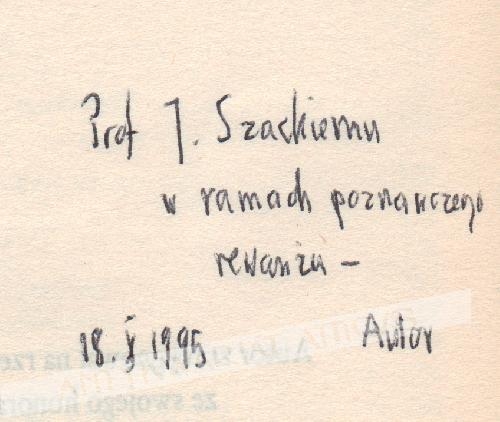 Prof J. Szackiemu
w ramach poznawczego
rewanżu –
18 X 1995 Autor